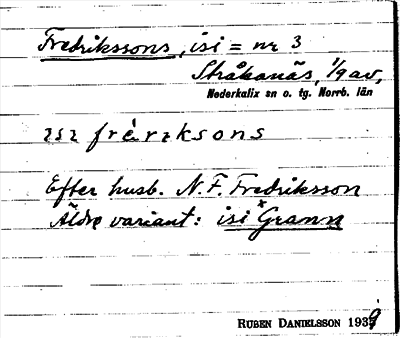 Fredrikssons, isi = nr 3
Stråkanäs, 1/9 av,
Nederkalix sn o. tg. Norrb. län
ızı frèrıksons
Efter husb. N. F. Fredriksson
Äldre variant: isi Gramn
RUBEN DANIELSSON 1939